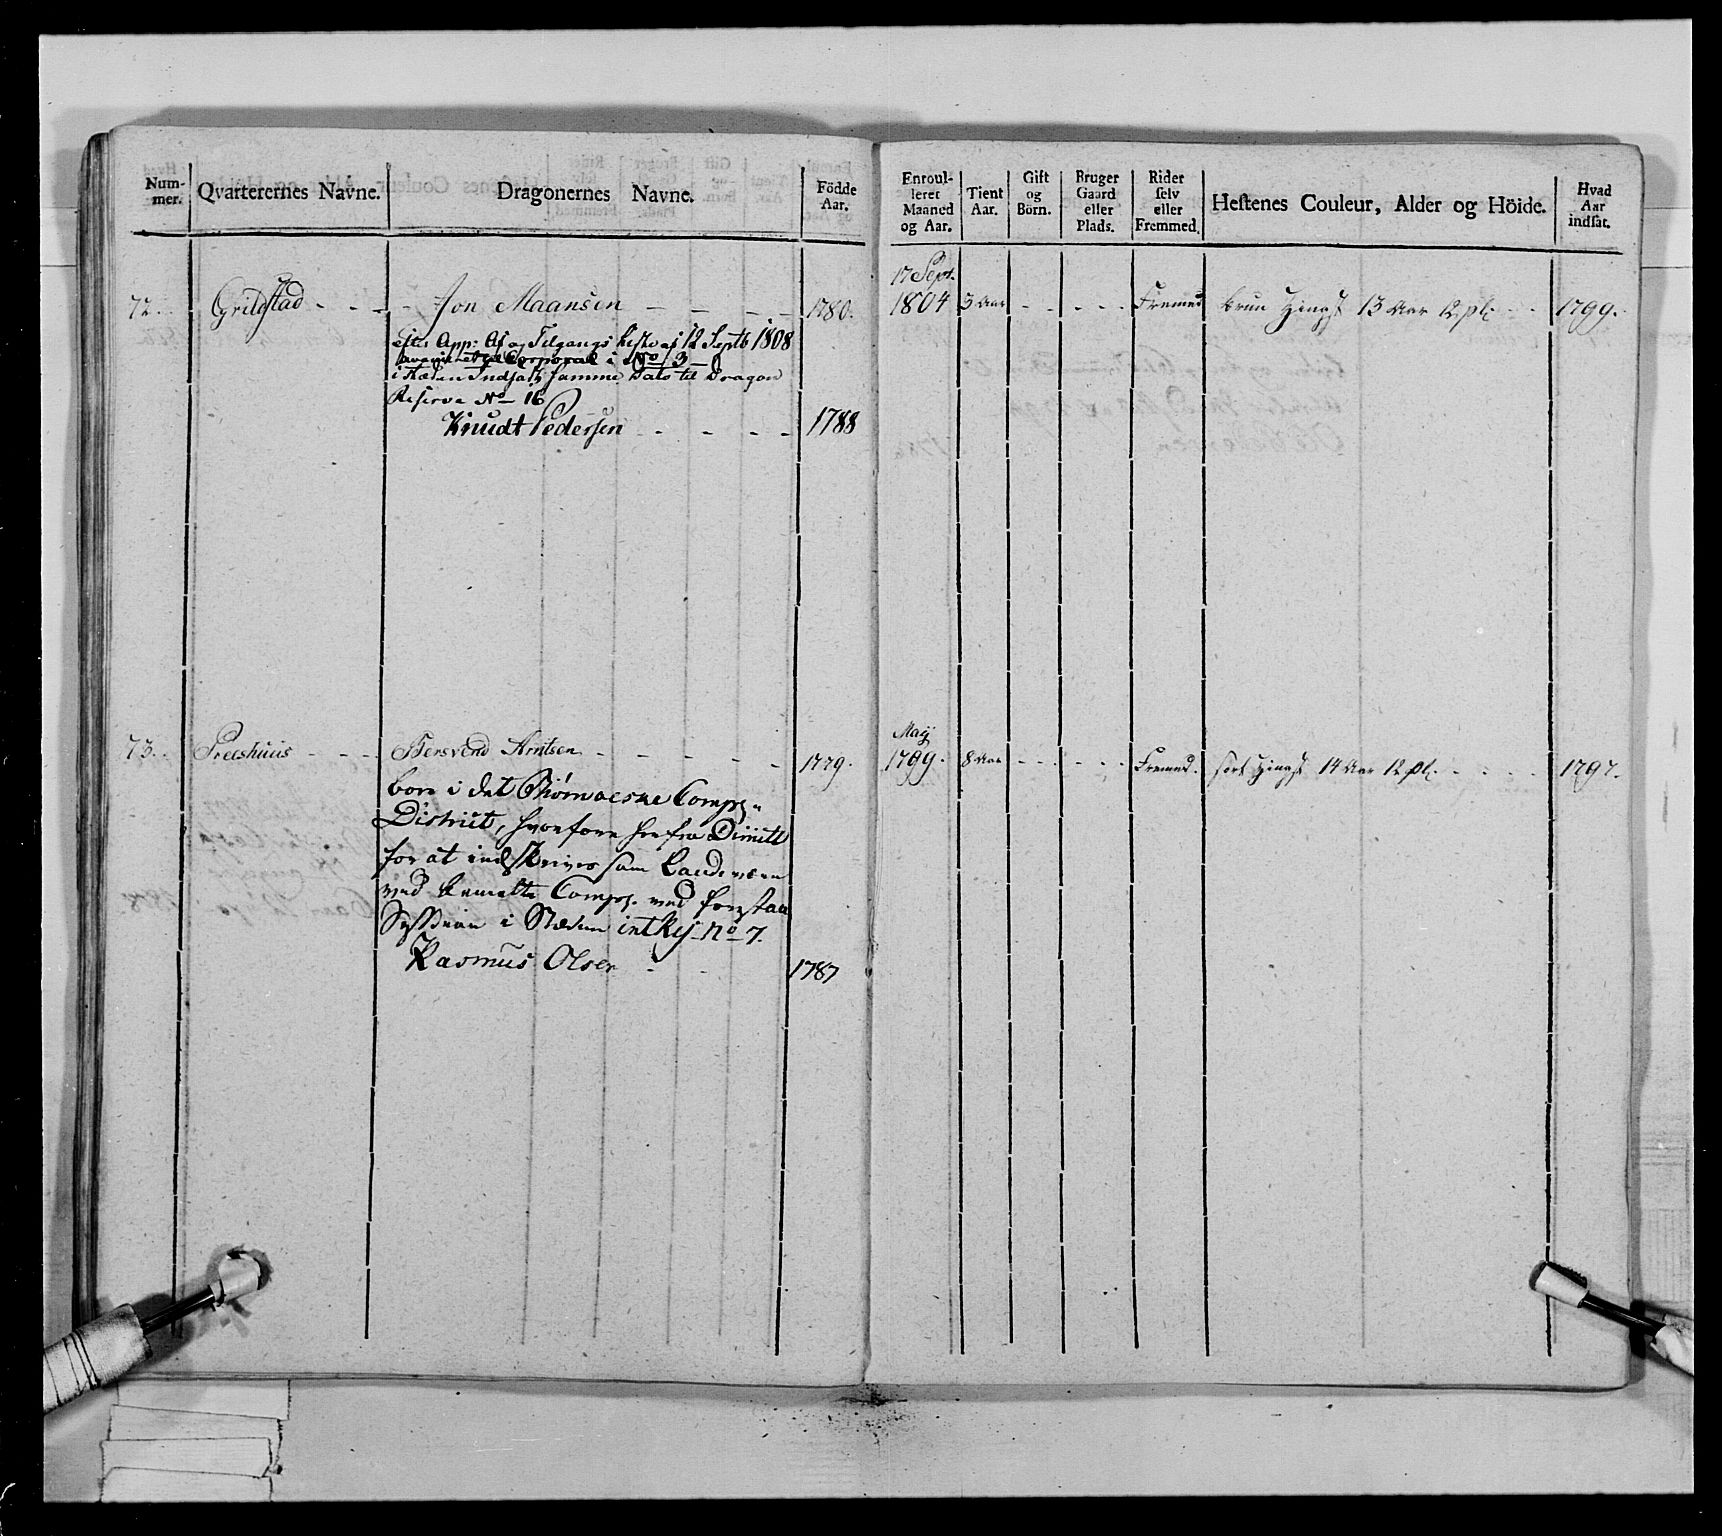 Num-
mer.
Qvarterernes Navne.
Dragonernes Navne.
Födde
Aar.
Enroul-
lerer
Maaned
og Aar.
Tient
Aar.
Gift
og
Börn.
Bruger
Gaard
eller
Plads.
Rider
selv
eller
Fremmed.
Hestenes Couleur, Alder og Höide.
Hvad
Aar
indsat.
17 Sept.
72. Grildstad - - - - Jon Maansen - - - - 1780. 1804 3 Aar - - - - - Fremed brun Hingst 13 Aar 12 pl: - - 1799.
efter App: Af og Tilgangs Liste af 12 Septb 1808
avancert til Corporal i No 3 -
i stæden Indsatt samme Dato til Dragon
Reserve No 16
Knudt Pedersen - - - - 1788
May
73. Preeshuus - - - Bersvend Arntsen - - - - - 1779. 1799. 8 Aar - - - - - - Fremed. sort Hingst 14 Aar 12 pl. - - - - 1797.
boer i det Compg:
District, hvorfore herfra Dimitt
for at indskrives som Landeværn
ved bemelte Compg. ved forstaa
i Stæden int Res No 7.
Rasmus Olsen - - 1787